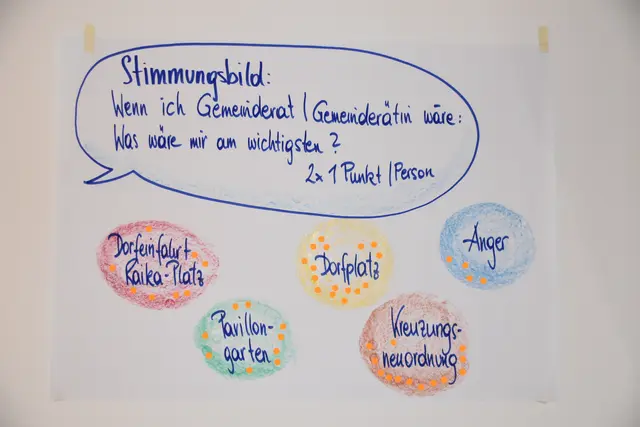 Stimmungsbild:
Wenn ich Gemeinderat / Gemeinderätin wäre:
Was wäre mir am wichtigsten?
2x 1 Punkt / Person
Dorfeinfahrt
Raika-Platz
Dorfplatz
Anger
Pavillon-
garten
Kreuzungs-
neuordnung